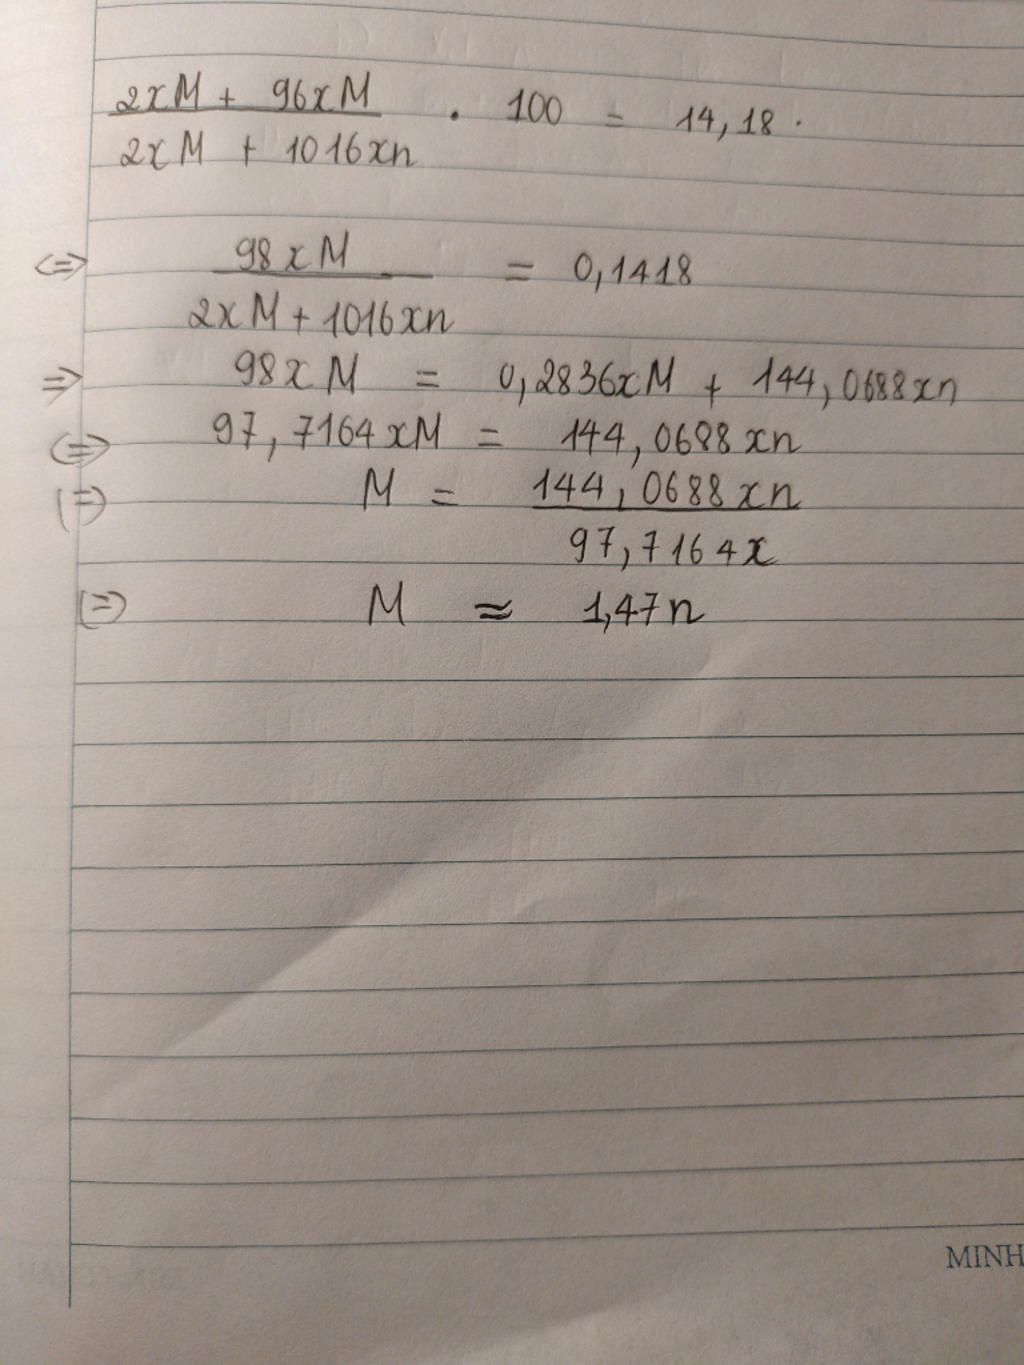 2xM + 96xM / 2xM + 1016xn . 100 = 14,18.
<=> 98xM / 2xM + 1016xn = 0,1418
=> 98xM = 0,2836xM + 144,0688xn
<=> 97,7164xM = 144,0688xn
(=) M = 144,0688xn / 97,7164x
(=) M ≈ 1,47n
MINH